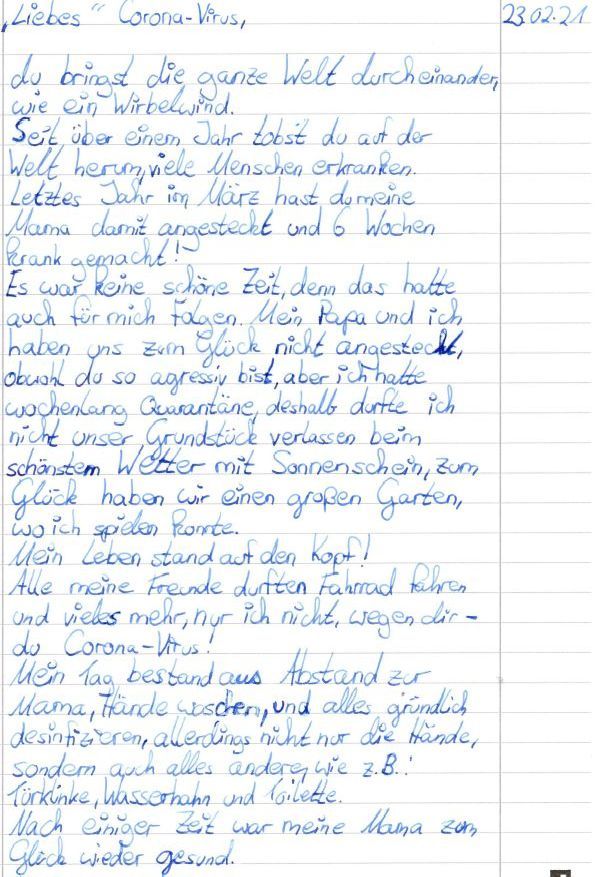 „Liebes" Corona-Virus, 23.02.21
du bringst die ganze Welt durcheinander,
wie ein Wirbelwind.
Seit über einem Jahr tobst du auf der
Welt herum, viele Menschen erkranken.
Letztes Jahr im März hast du meine
Mama damit angesteckt und 6 Wochen
krank gemacht!
Es war keine schöne Zeit, denn das hatte
auch für mich Folgen. Mein Papa und ich
haben uns zum Glück nicht angesteckt,
obwohl du so agressiv bist, aber ich hatte
wochenlang Quarantäne, deshalb durfte ich
nicht unser Grundstück verlassen beim
schönstem Wetter mit Sonnenschein, zum
Glück haben wir einen großen Garten,
wo ich spielen konnte.
Mein Leben stand auf den Kopf!
Alle meine Freunde durften Fahrrad fahren
und vieles mehr, nur ich nicht, wegen dir –
du Corona-Virus!
Mein Tag bestand aus Abstand zur
Mama, Hände waschen, und alles gründlich
desinfizieren, allerdings nicht nur die Hände,
sondern auch alles andere, wie z.B.:
Türklinke, Wasserhahn und Toilette.
Nach einiger Zeit war meine Mama zum
Glück wieder gesund.